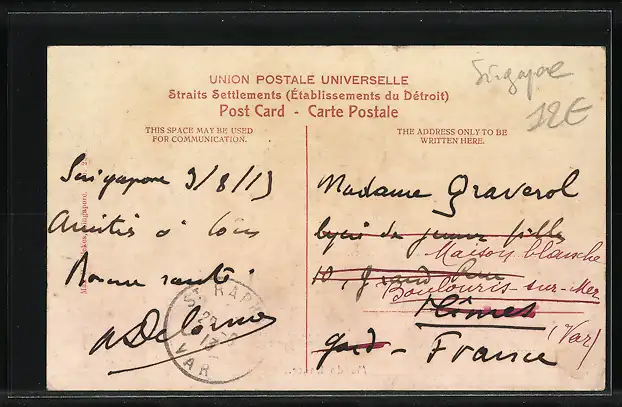 Singapore
12€
UNION POSTALE UNIVERSELLE
Straits Settlements (Établissements du Détroit)
Post Card - Carte Postale
THIS SPACE MAY BE USED
FOR COMMUNICATION.
THE ADDRESS ONLY TO BE
WRITTEN HERE.
Singapore 9/8/13
Amitiés à tous
Bonne santé.
Delorme
ST RAPH
VAR
Madame Graverol
lycée de jeunes filles
Maison blanche
10, Grand Rue
Boulouris-sur-Mer
Nîmes
(Var)
Gard - France